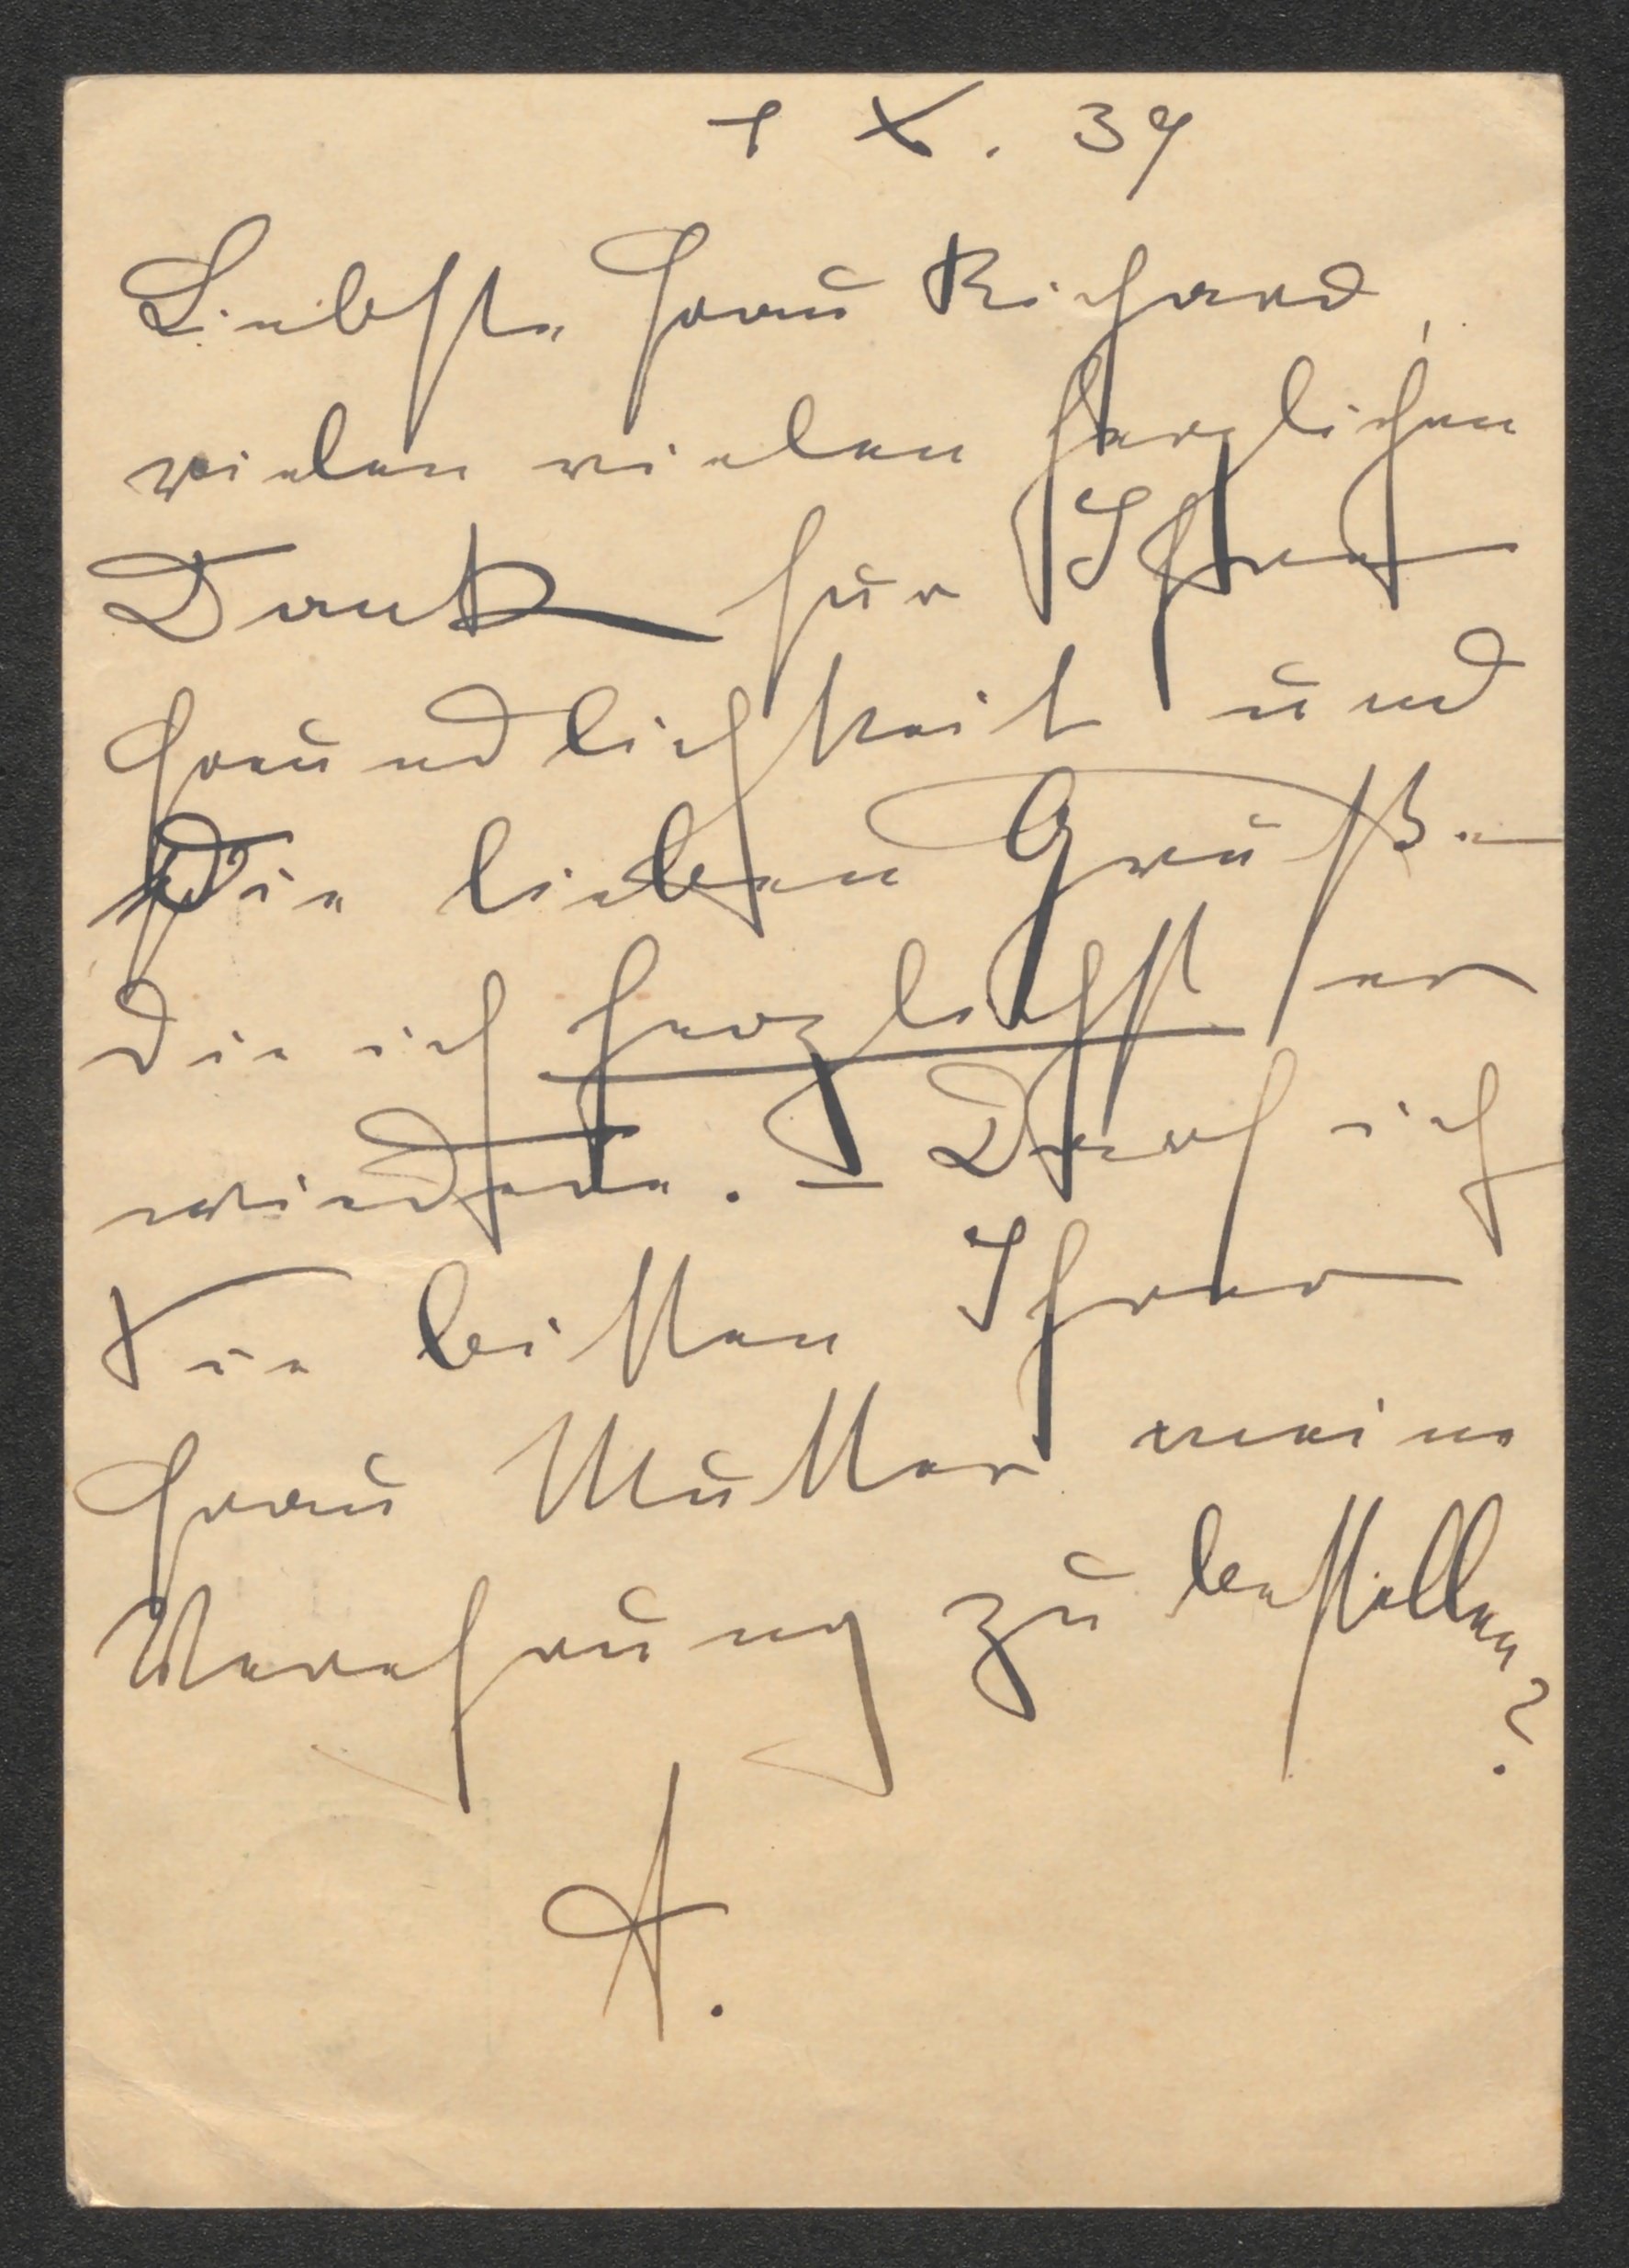 X. 39
Liebste Frau Richard,
vielen vielen herzlichen
Dank für Ihre
Freundlichkeit und
Die lieben Grüße
die ich herzlichst er
wiedere. – Darf ich
Sie bitten Ihrer
Frau Mutter meine
Verehrung zu bestellen?
A.